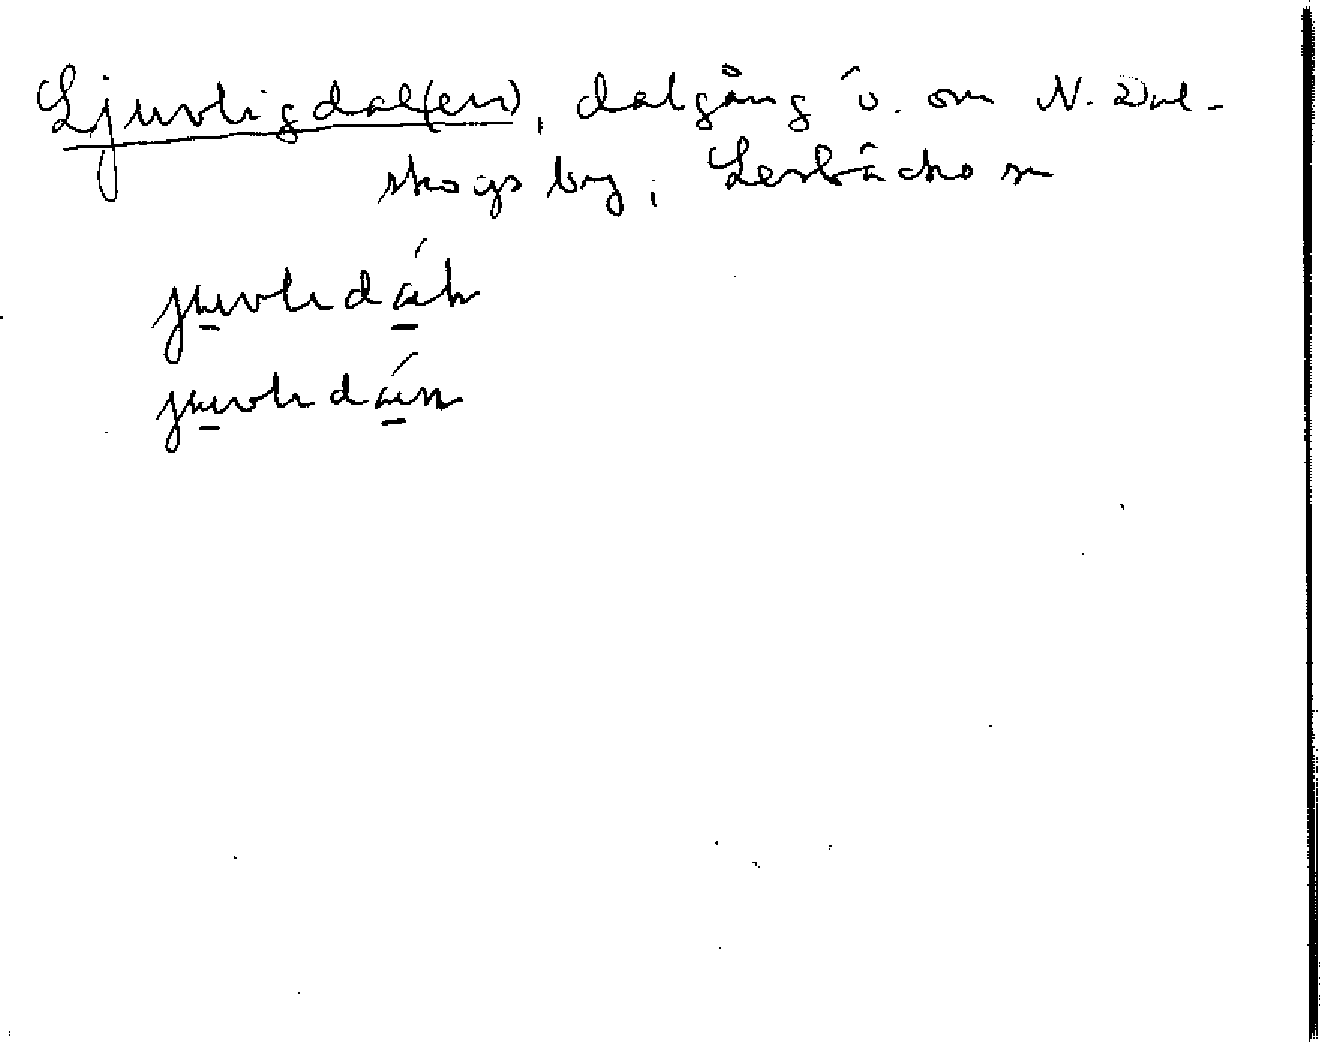 Ljuvligdal(en), dalgång ö. om N. Dal-
skogs by, Lerbäcks sn
juvlidál
juvlidán